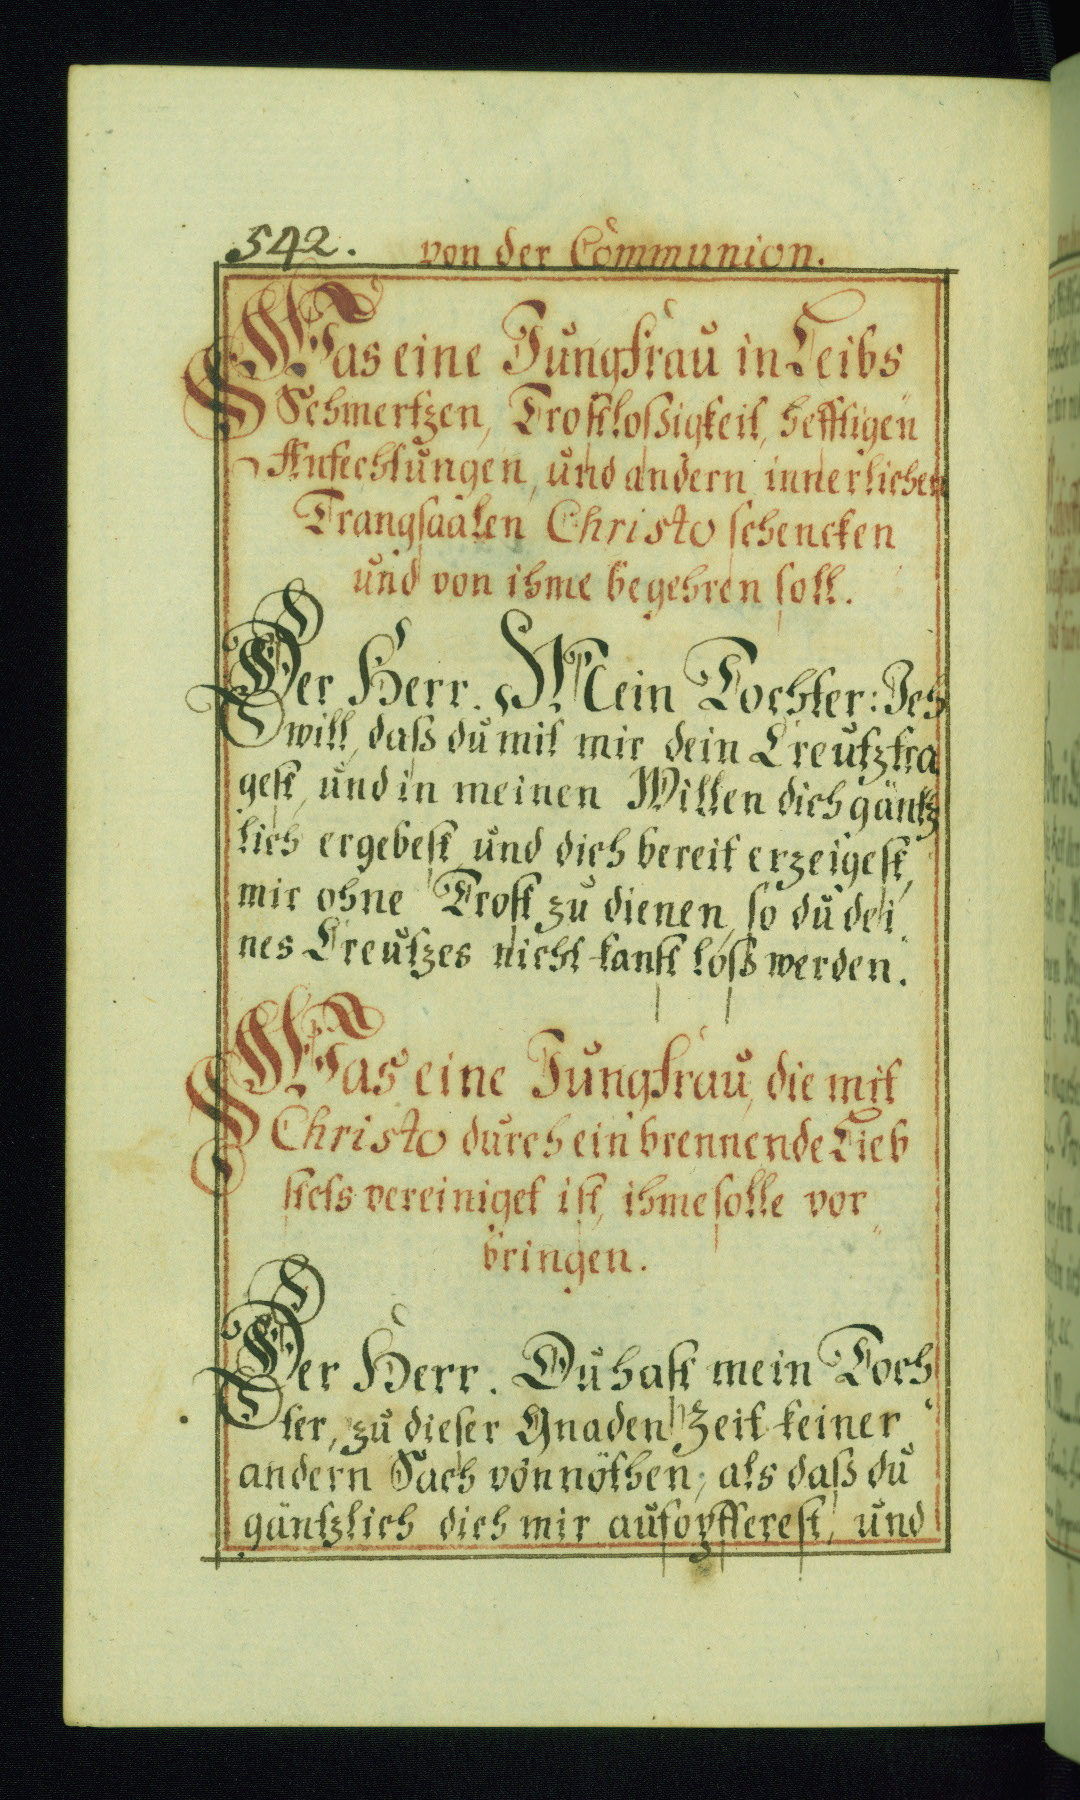 542. von der Communion.
Was eine Jungfrau in Leibs
Schmertzen, Trostloßigkeit, hefftigen
Anfechtungen, und andern innerlichen
Trangsaalen Christo schencken
und von ihme begehren soll.
Der Herr. Mein Tochter: Ich
will, daß du mit mir dein Creutz tra
gest, und in meinen Willen dich gäntz
lich ergebest, und dich bereit erzeigest,
mir ohne Trost zu dienen, so du dei
nes Creutzes nicht kanst loß werden.
Was eine Jungfrau, die mit
Christo durch ein brennende Lieb
stets vereiniget ist, ihme solle vor
bringen.
Der Herr. Du hast mein Toch
ter, zu dieser Gnaden Zeit keiner
andern Sach vonnöthen, als daß du
gäntzlich dich mir aufopfferest, und